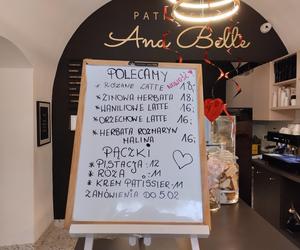 PATI
Ana Belle
POLECAMY
* RÓŻANE LATTE NOWOŚĆ 18,-
* ZIMOWA HERBATA 18,
* WANILIOWE LATTE 16,
* ORZECHOWE LATTE 16,
* HERBATA ROZMARYN
MALINA 16;
PĄCZKI
* PISTACJA : 12
* RÓŻA : 11
* KREM PATISSIER : 11
ZAMÓWIENIA DO 5.02